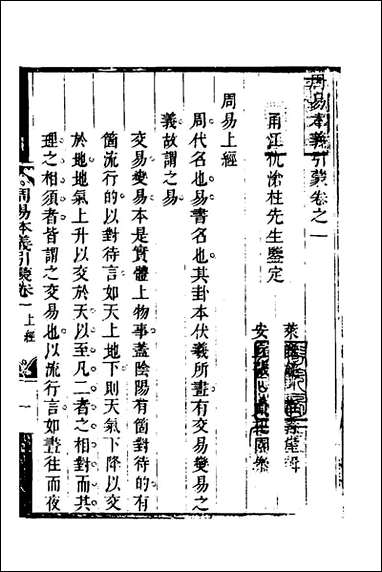 周易本義引蒙卷之一
甬江仇滄柱先生鑒定
周易上經
周代名也易書名也其卦本伏羲所畫有交易變易之
義故謂之易
交易變易本是實體上物事蓋陰陽有箇對待的有
箇流行的以對待言如天上地下則天氣下降以交
於地地氣上升以交於天以至凡二者之相對而其
理之相須者皆謂之交易也以流行言如晝往而夜
周易本義引蒙卷一 上經 一